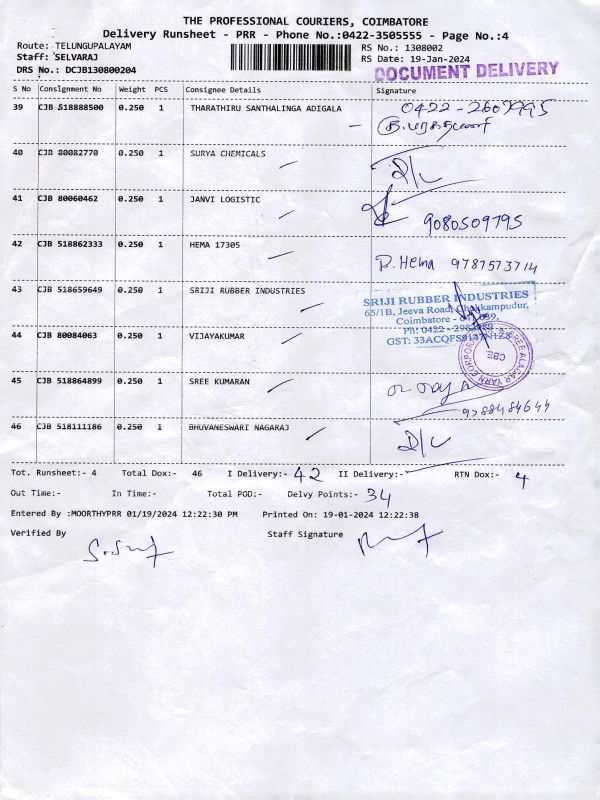 THE PROFESSIONAL COURIERS, COIMBATORE
Delivery Runsheet - PRR - Phone No.:0422-3505555 - Page No.:4
Route: TELUNGUPALAYAM
RS No.: 1308002
Staff: SELVARAJ
RS Date: 19-Jan-2024
DRS No.: DCJB130800204
DOCUMENT DELIVERY
S No Consignment No Weight PCS Consignee Details Signature
39 CJB 518888500 0.250 1 THARATHIRU SANTHALINGA ADIGALA
0422-2609995
40 CJB 80082770 0.250 1 SURYA CHEMICALS
D/L
41 CJB 80060462 0.250 1 JANVI LOGISTIC
9080509795
42 CJB 518862333 0.250 1 HEMA 17305
D. Hema 9787573714
43 CJB 518659649 0.250 1 SRIJI RUBBER INDUSTRIES
SRIJI RUBBER INDUSTRIES
65/1B, Jeeva Road,
Coimbatore -
Ph: 0422 -
GST:
44 CJB 80084063 0.250 1 VIJAYAKUMAR
CBE.
45 CJB 518864899 0.250 1 SREE KUMARAN
9788484644
46 CJB 518111186 0.250 1 BHUVANESWARI NAGARAJ
D/L
Tot. Runsheet:- 4 Total Dox:- 46 I Delivery:- 42 II Delivery:- RTN Dox:- 4
Out Time:- In Time:- Total POD:- Delvy Points:- 34
Entered By :MOORTHYPRR 01/19/2024 12:22:30 PM Printed On: 19-01-2024 12:22:38
Verified By Staff Signature